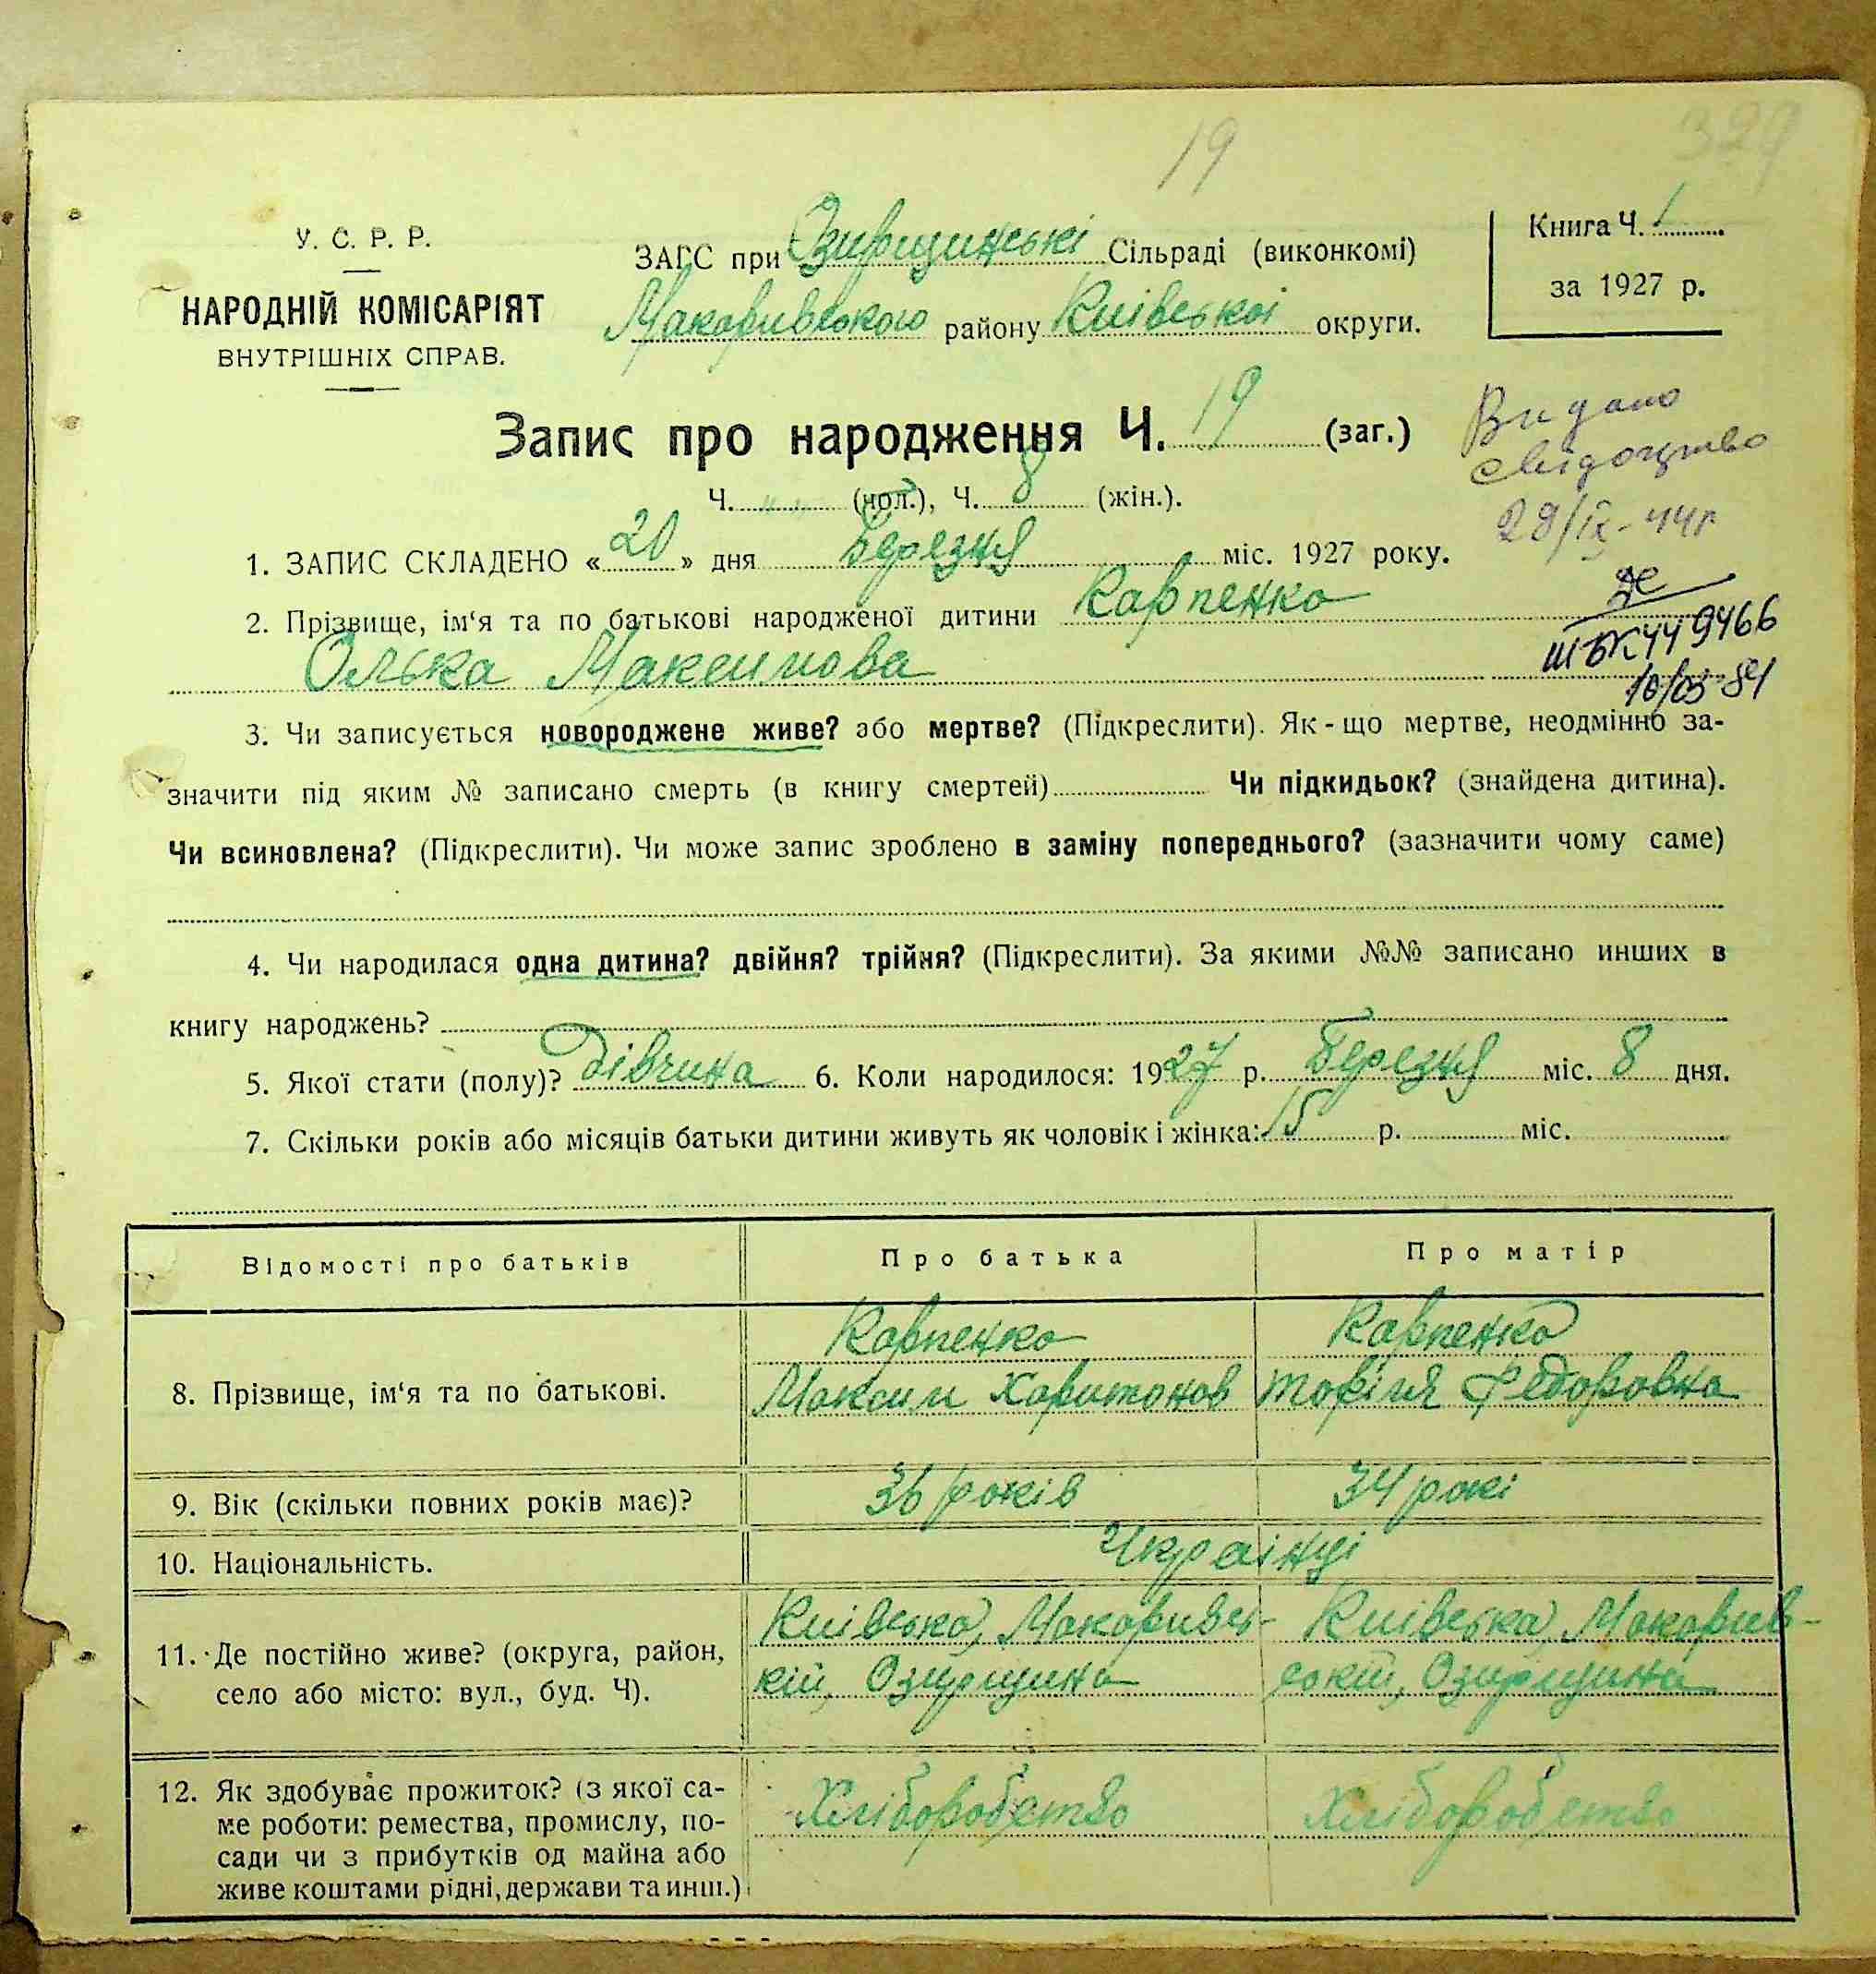 19
329
У. С. Р. Р.
НАРОДНІЙ КОМІСАРІЯТ
ВНУТРІШНІХ СПРАВ.
ЗАГС при Озирщинські Сільраді (виконкомі)
Макоривського району Київської округи.
Книга Ч. 1
за 1927 р.
Запис про народження Ч. 19 (заг.)
Ч. " (чол.), Ч. 8 (жін.).
Видано
свідоцтво
28/IX-44р
1. ЗАПИС СКЛАДЕНО «20» дня Березня міс. 1927 року.
2. Прізвище, ім‘я та по батькові народженої дитини Карпенко
Олька Максимова
ШБК 449466
10/05 84
3. Чи записується новороджене живе? або мертве? (Підкреслити). Як-що мертве, неодмінно за-
значити під яким № записано смерть (в книгу смертей) Чи підкидьок? (знайдена дитина).
Чи всиновлена? (Підкреслити). Чи може запис зроблено в заміну попереднього? (зазначити чому саме)
4. Чи народилася одна дитина? двійня? трійня? (Підкреслити). За якими №№ записано инших в
книгу народжень?
5. Якої стати (полу)? Дівчина 6. Коли народилося: 1927 р. Березня міс. 8 дня.
7. Скільки років або місяців батьки дитини живуть як чоловік і жінка: 15 р. міс.
Відомості про батьків Про батька Про матір
Карпенко Карпенко
8. Прізвище, ім‘я та по батькові. Максим Харитонов Федоровна
9. Вік (скільки повних років має)? 36 років 34 рокі
10. Національність. Українці
Київська, Макоривсь- Київська, Макорив-
11. Де постійно живе? (округа, район, кій, Озирщина ській, Озирщина
село або місто: вул., буд. Ч).
12. Як здобуває прожиток? (з якої са- Хліборобство Хліборобство
ме роботи: ремества, промислу, по-
сади чи з прибутків од майна або
живе коштами рідні, держави та инш.)